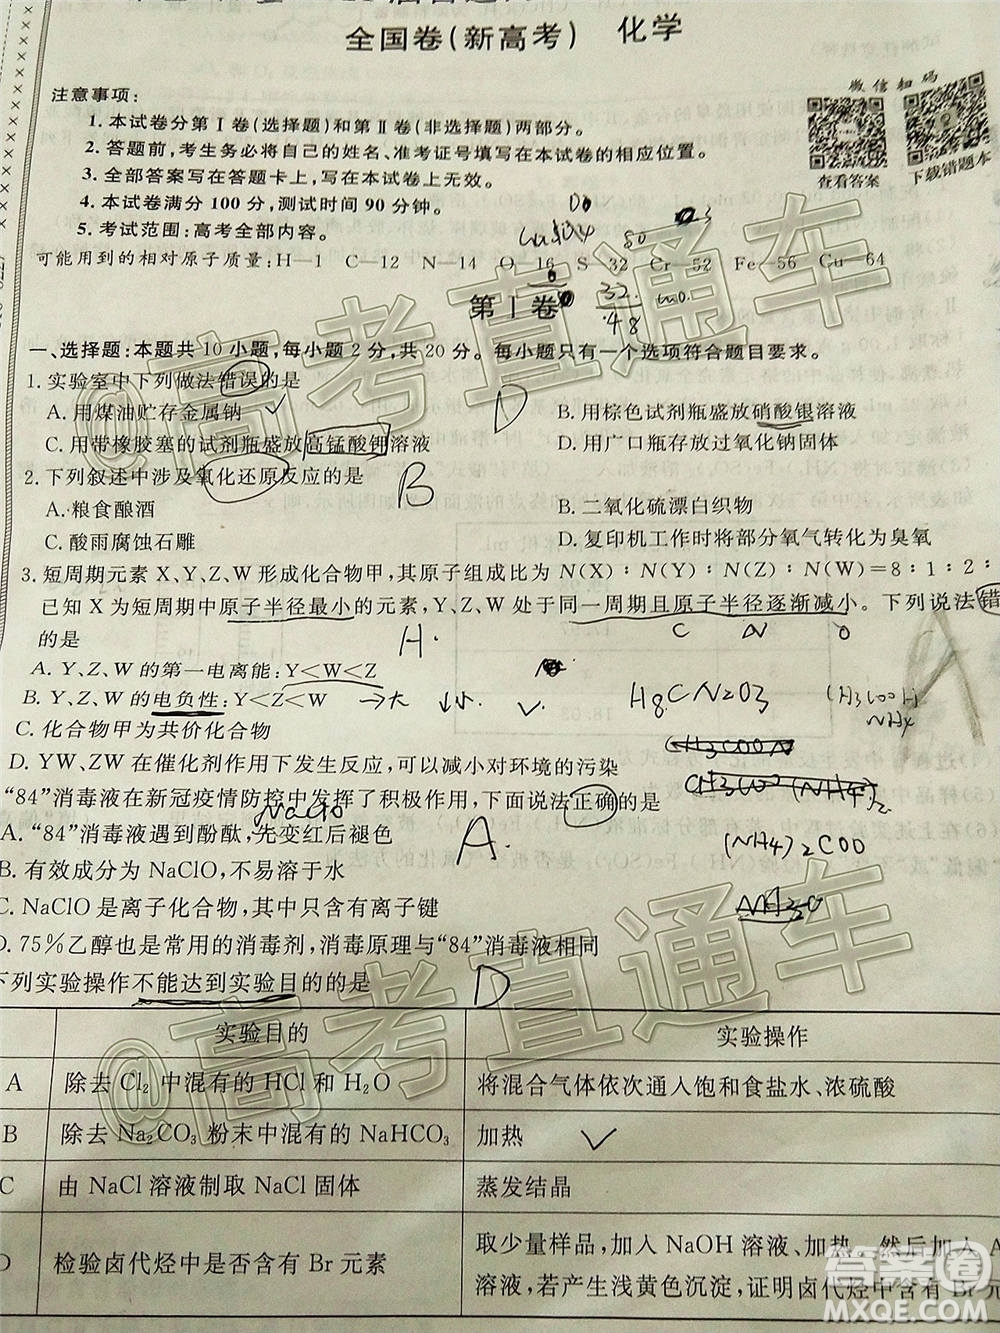 全国卷(新高考) 化学
微信扫码
查看答案
下载错题本
注意事项:
1. 本试卷分第Ⅰ卷(选择题)和第Ⅱ卷(非选择题)两部分。
2. 答题前,考生务必将自己的姓名、准考证号填写在本试卷的相应位置。
3. 全部答案写在答题卡上,写在本试卷上无效。
4. 本试卷满分 100 分,测试时间 90 分钟。
5. 考试范围:高考全部内容。
可能用到的相对原子质量:H—1 C—12 N—14 O—16 S—32 Cr—52 Fe—56 Cu—64
第Ⅰ卷
32
48
一、选择题:本题共 10 小题,每小题 2 分,共 20 分。每小题只有一个选项符合题目要求。
1. 实验室中下列做法错误的是
D
A. 用煤油贮存金属钠
B. 用棕色试剂瓶盛放硝酸银溶液
C. 用带橡胶塞的试剂瓶盛放高锰酸钾溶液
D. 用广口瓶存放过氧化钠固体
2. 下列叙述中涉及氧化还原反应的是
B
A. 粮食酿酒
B. 二氧化硫漂白织物
C. 酸雨腐蚀石雕
D. 复印机工作时将部分氧气转化为臭氧
3. 短周期元素 X、Y、Z、W 形成化合物甲,其原子组成为 N(X)∶N(Y)∶N(Z)∶N(W)=8∶1∶2∶
已知 X 为短周期中原子半径最小的元素,Y、Z、W 处于同一周期且原子半径逐渐减小。下列说法错
的是
H
C N O
A. Y、Z、W 的第一电离能:Y<W<Z
B. Y、Z、W 的电负性:Y<Z<W
→大 ↓小
H8CN2O3
C. 化合物甲为共价化合物
D. YW、ZW 在催化剂作用下发生反应,可以减小对环境的污染
“84”消毒液在新冠疫情防控中发挥了积极作用,下面说法正确的是
NaClO
A
(NH4)2COO
A. “84”消毒液遇到酚酞,先变红后褪色
B. 有效成分为 NaClO,不易溶于水
C. NaClO 是离子化合物,其中只含有离子键
D. 75%乙醇也是常用的消毒剂,消毒原理与“84”消毒液相同
下列实验操作不能达到实验目的的是
D
实验目的 实验操作
A 除去 Cl₂ 中混有的 HCl 和 H₂O 将混合气体依次通入饱和食盐水、浓硫酸
B 除去 Na₂CO₃ 粉末中混有的 NaHCO₃ 加热
C 由 NaCl 溶液制取 NaCl 固体 蒸发结晶
D 检验卤代烃中是否含有 Br 元素 取少量样品,加入 NaOH 溶液、加热,然后加入 A
溶液,若产生浅黄色沉淀,证明卤代烃中含有 Br 元
@高考直通车
@高考直通车
答案圈
MXQE.COM